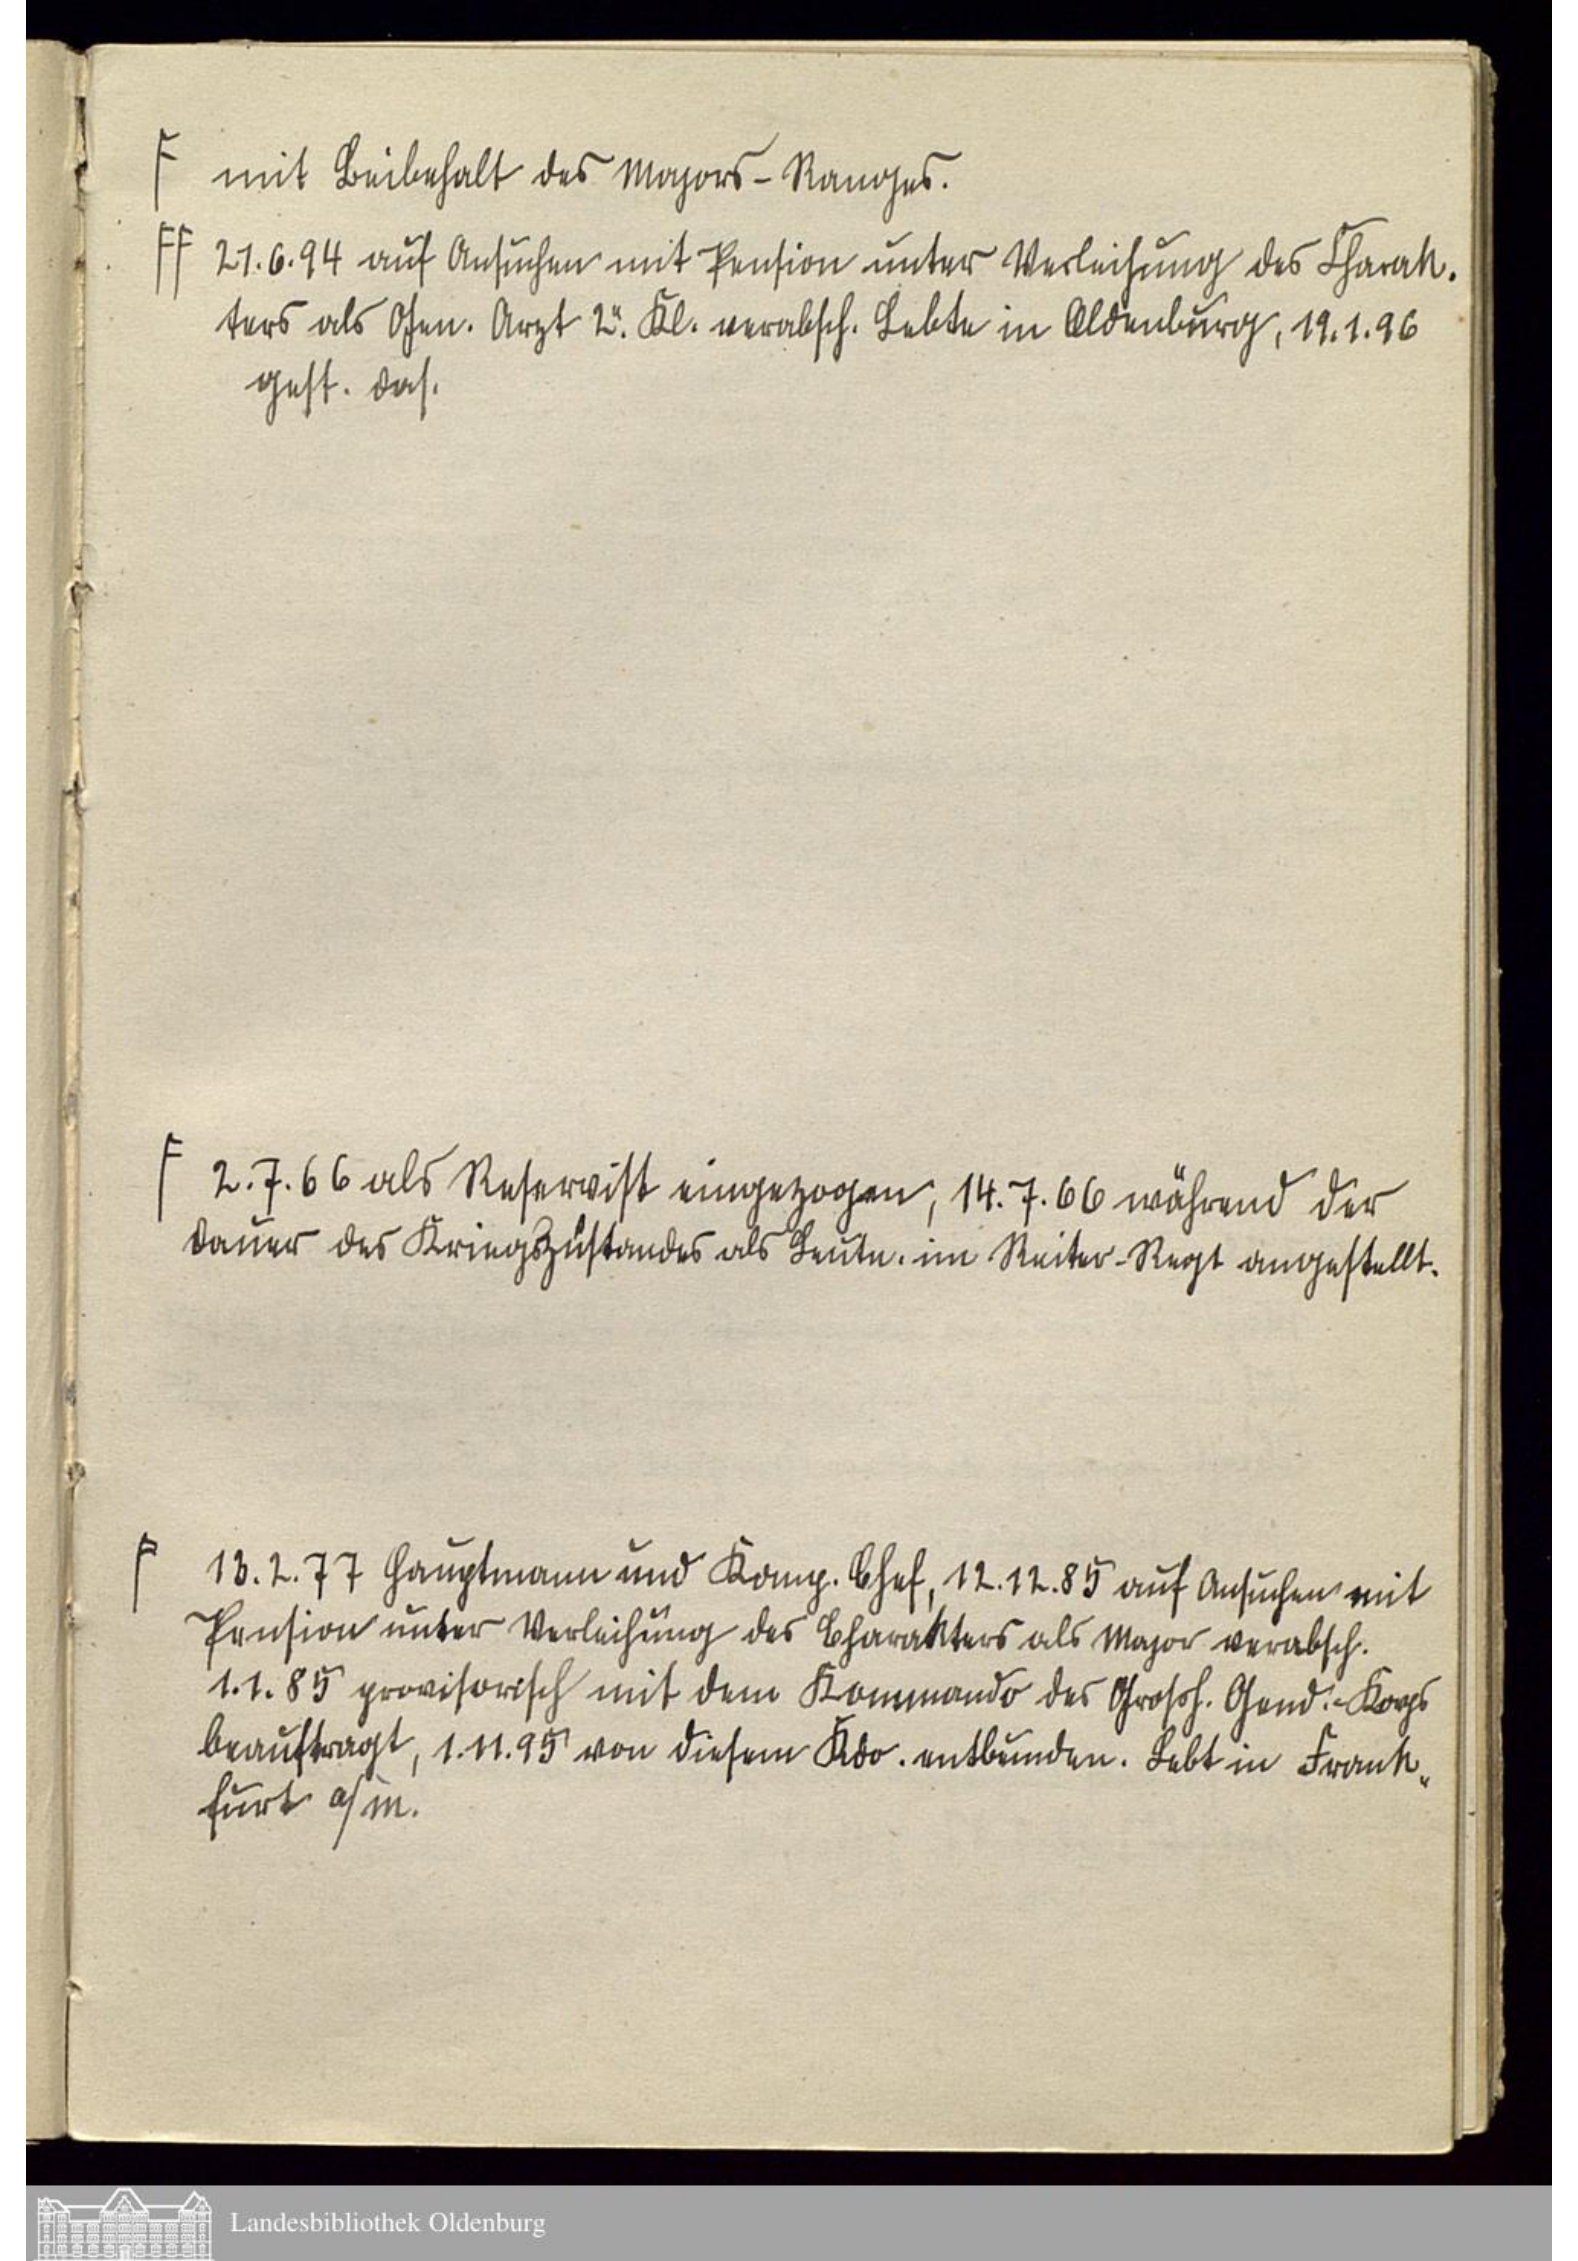 F mit Beibehalt des Majors-Ranges.
FF 21.6.94 auf Ansuchen mit Pension unter Verleihung des Charak-
ters als Gen. Arzt 2r. Kl. verabsch. Lebte in Oldenburg, 19.1.96
gest. das.
F 2.7.66 als Reservist eingezogen, 14.7.66 während der
Dauer des Kriegszustandes als Leutn. im Reiter-Regt angestellt.
F 13.2.77 Hauptmann und Komp. Chef, 12.12.85 auf Ansuchen mit
Pension unter Verleihung des Charakters als Major verabsch.
1.1.85 provisorisch mit dem Kommando des Grossh. Gend.-Korps
beauftragt, 1.11.95 von diesem Kdo. entbunden. Lebt in Frank-
furt a/M.
Landesbibliothek Oldenburg